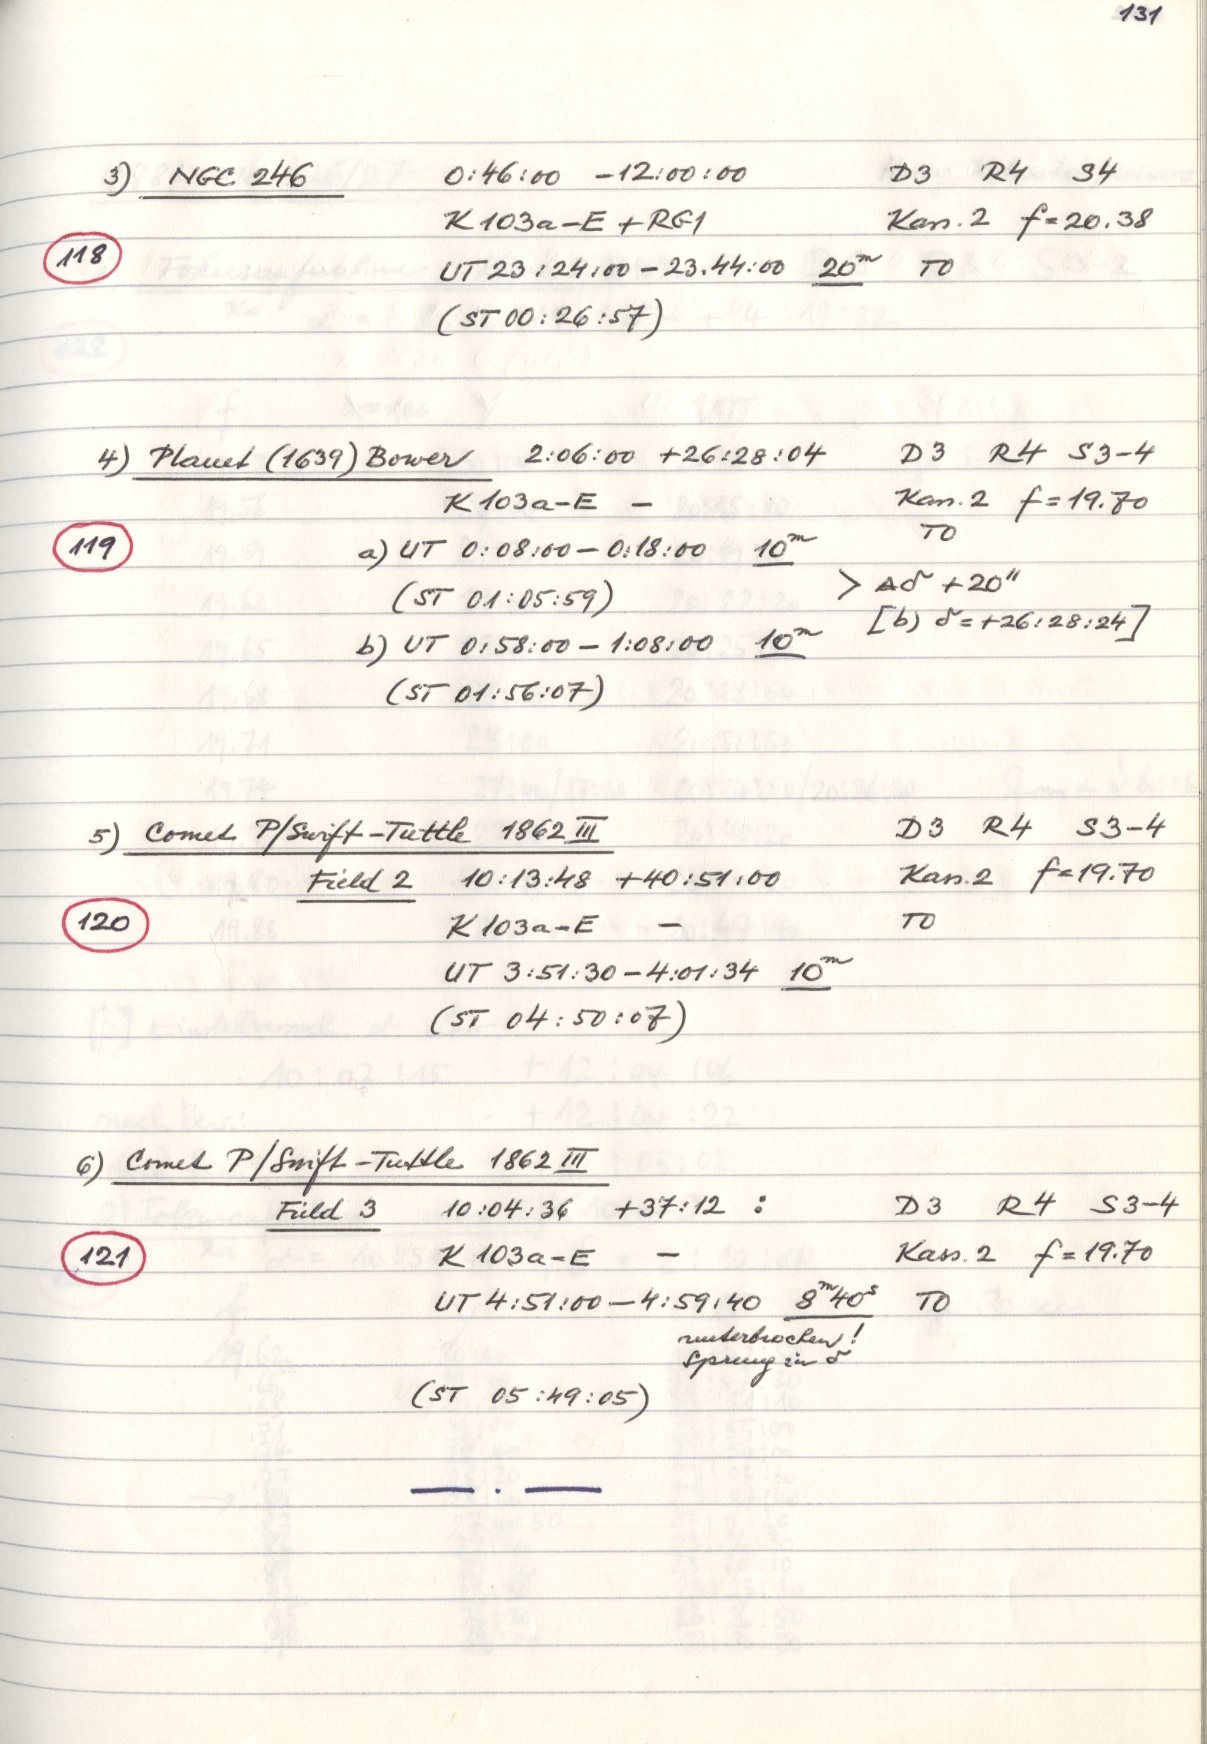 131
3) NGC 246 0:46:00 -12:00:00 D3 R4 S4
K 103a-E + RG1 Kass. 2 f=20.38
118 UT 23:24:00 - 23.44:00 20m TO
(ST 00:26:57)
4) Planet (1639) Bower 2:06:00 +26:28:04 D3 R4 S3-4
K 103a-E - Kass. 2 f=19.70
119 a) UT 0:08:00 - 0:18:00 10m TO
(ST 01:05:59) > Δδ +20"
b) UT 0:58:00 - 1:08:00 10m [b) δ=+26:28:24]
(ST 01:56:07)
5) Comet P/Swift-Tuttle 1862 III D3 R4 S3-4
Field 2 10:13:48 +40:51:00 Kass. 2 f=19.70
120 K 103a-E - TO
UT 3:51:30 - 4:01:34 10m
(ST 04:50:07)
6) Comet P/Swift-Tuttle 1862 III
Field 3 10:04:36 +37:12 : D3 R4 S3-4
121 K 103a-E - Kass. 2 f=19.70
UT 4:51:00 - 4:59:40 8m40s TO
unterbrochen!
Sprung in δ
(ST 05:49:05)